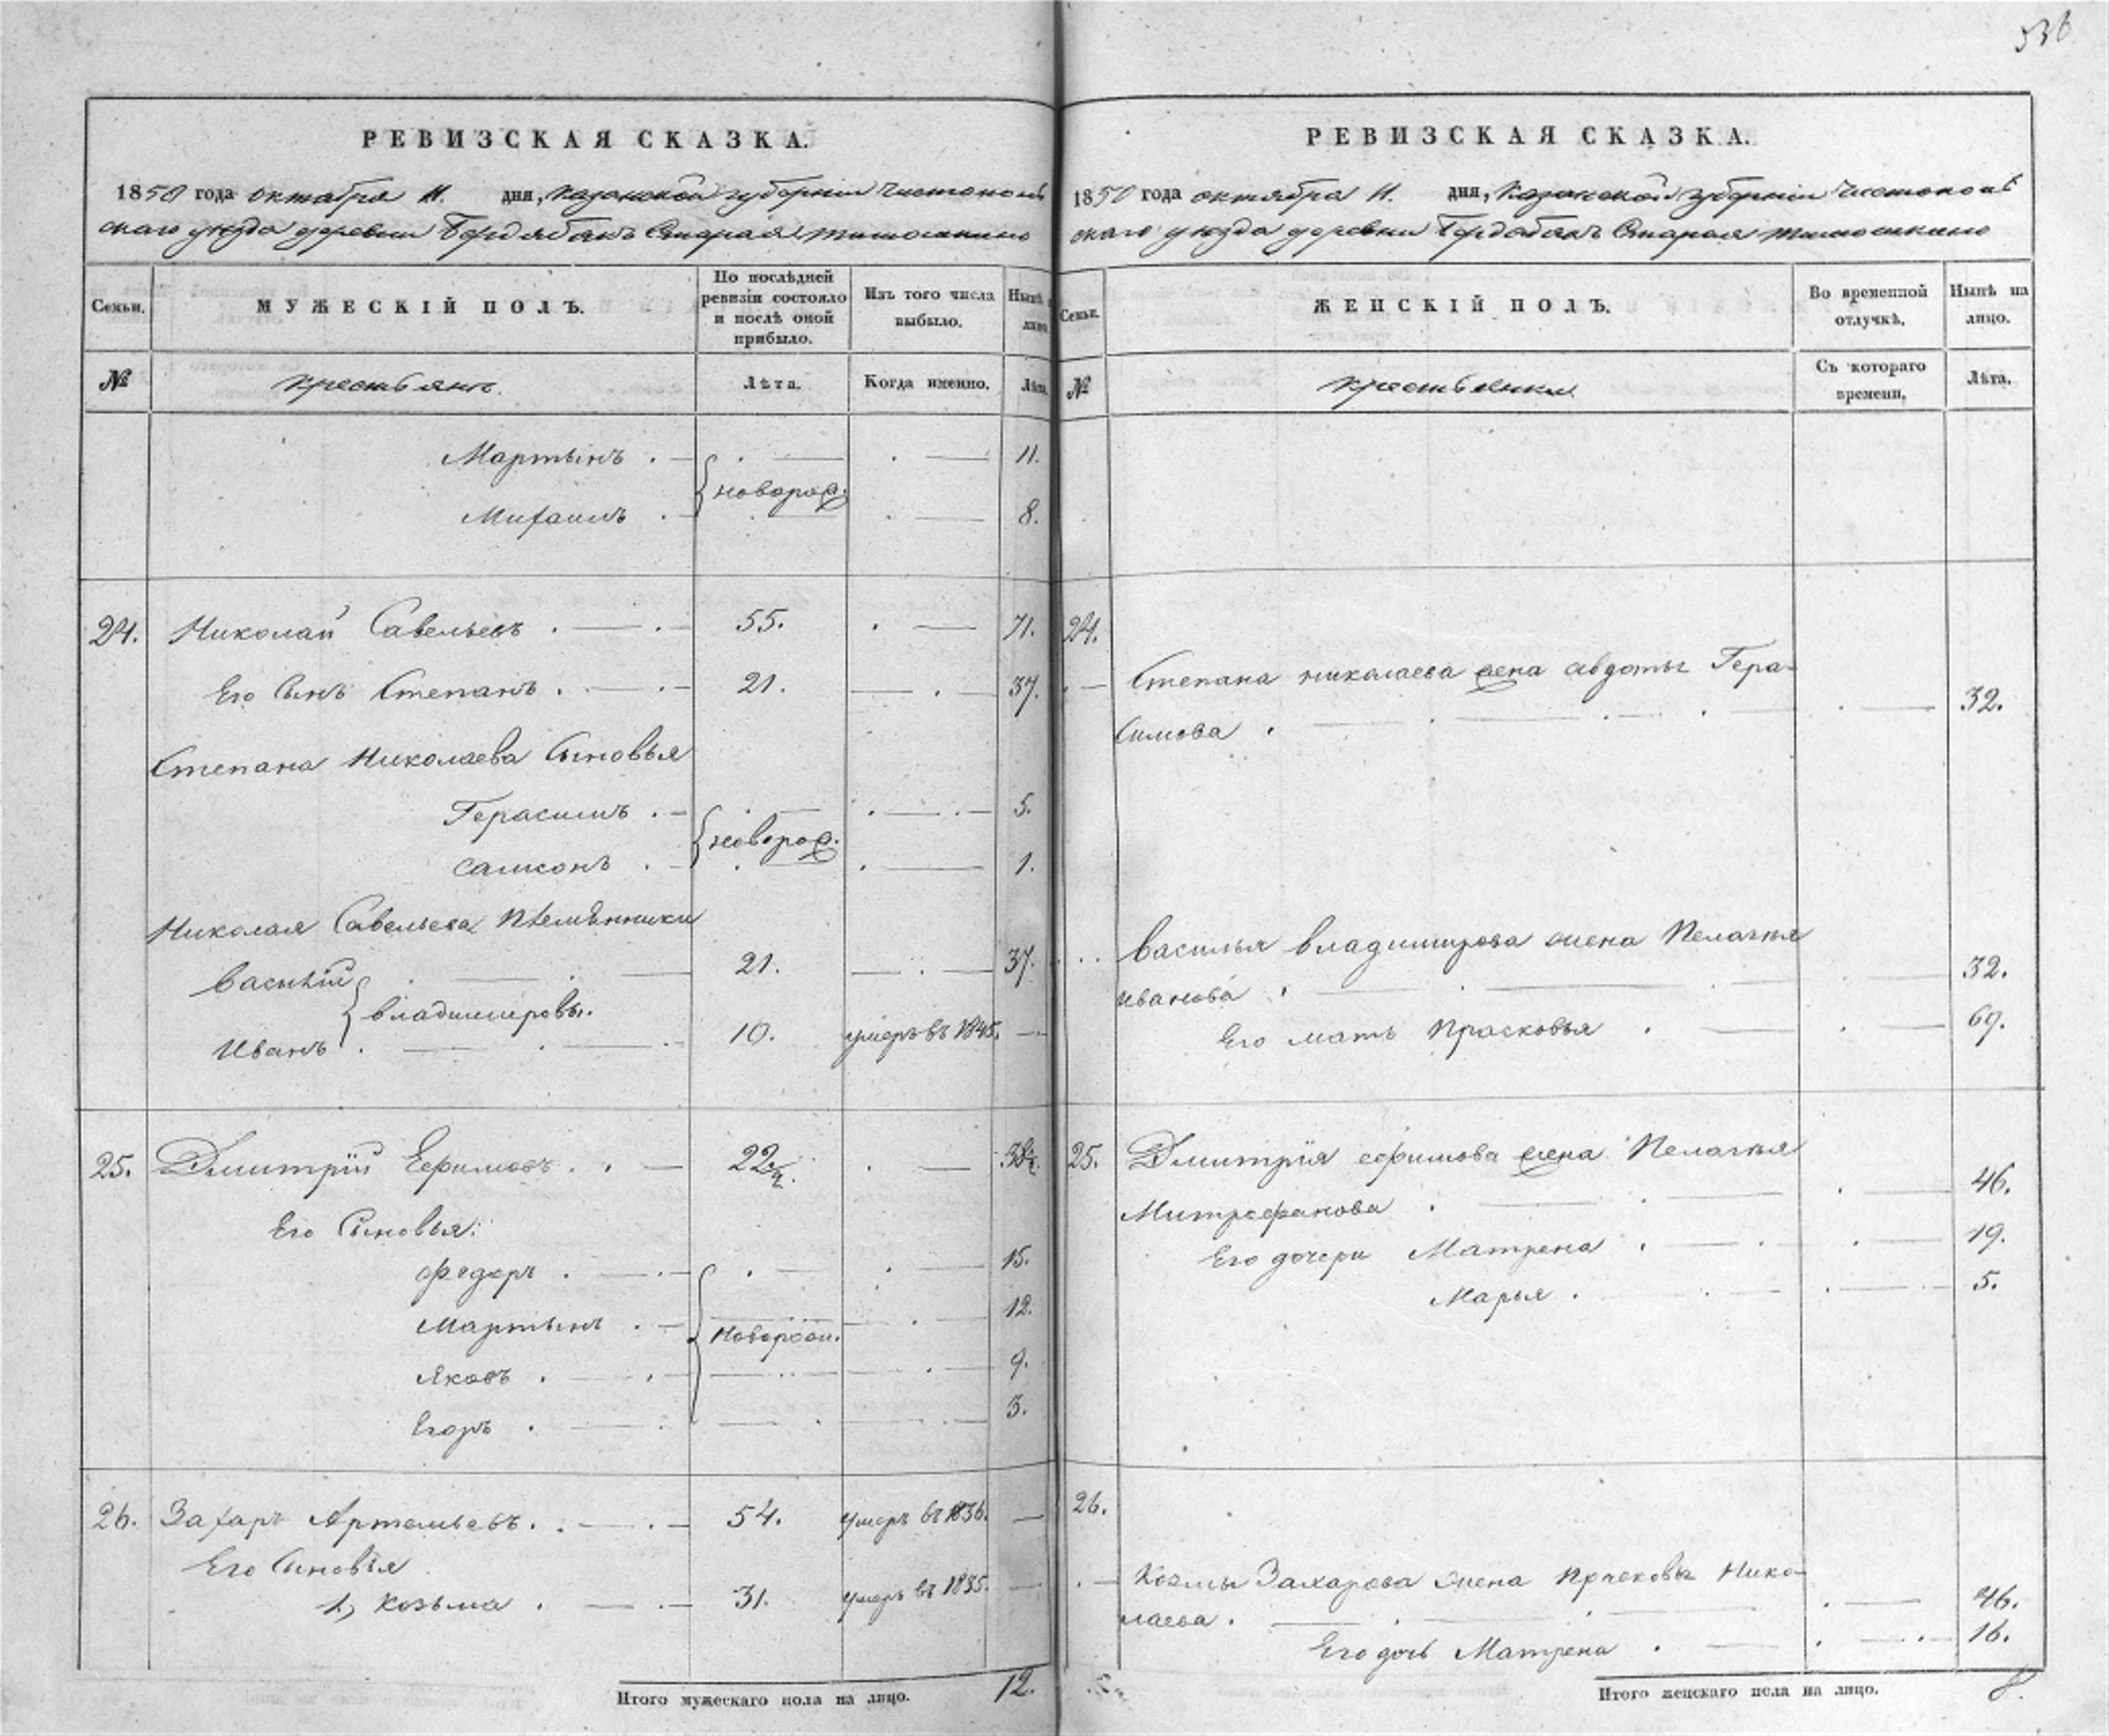 536
РЕВИЗСКАЯ СКАЗКА.
1850 года октября 11. дня, Казанской губернии Чистополь
скаго уезда деревни Бердябакъ Старая тимошкино
Семьи.
МУЖЕСКІЙ ПОЛЪ.
По послѣдней
ревизіи состояло
и послѣ оной
прибыло.
Изъ того числа
выбыло.
Нынѣ
лицо.
№
крестьянъ.
Лѣта.
Когда именно.
Лѣта.
Мартынъ . — . — . — 11.
новорож.
Михаилъ . — . — 8.
24. Николай Савельевъ . — . — 55. . — 71.
Его Сынъ Степанъ . — . — 21. — . — 37.
Степана Николаева Сыновья
Герасимъ . — . — . — . — 5.
новорож.
Самсонъ . — . — . — 1.
Николая Савельева племѣнники
Василій . — . — 21. — . — 37.
Владимировы.
Иванъ . — . — . — 10. умеръ въ 1845. —
25. Дмитрій Ефимовъ . . — 22½. . — 38½.
Его Сыновья:
Федоръ . — . — . — . — 15.
Мартынъ . — . — 12.
новорож.
Яковъ . — . — . . — . — 9.
Егоръ . — . — . — . — 3.
26. Захаръ Артемьевъ . . — . — 54. умеръ въ 1836. —
Его Сыновья
1, Козьма . — . — 31. умеръ въ 1835. —
Итого мужескаго пола на лицо. 12.
РЕВИЗСКАЯ СКАЗКА.
1850 года октября 11. дня, Казанской губерніи Чистополь
скаго уезда деревни Бердебакъ Старая тимошкино
Семьи.
ЖЕНСКІЙ ПОЛЪ.
Во временной
отлучкѣ.
Нынѣ на
лицо.
№
крестьянки
Съ котораго
времени.
Лѣта.
24.
. — Степана николаева жена авдотья Гера-
симова . — . — . — . — . — 32.
. . Василья владимирова жена Пелагея
иванова . — . — . — 32.
Его мать Прасковья . — . — 69.
25. Дмитрія ефимова жена Пелагея
Митрофанова . — . — . — 46.
Его дочери Матрена . — . — . — 19.
Марья . — . — . — 5.
26.
. — Козмы Захарова жена Прасковья Нико-
лаева . — . — . — . — 46.
Его дочь Матрена . — . — . — 16.
Итого женскаго пола на лицо. 8.